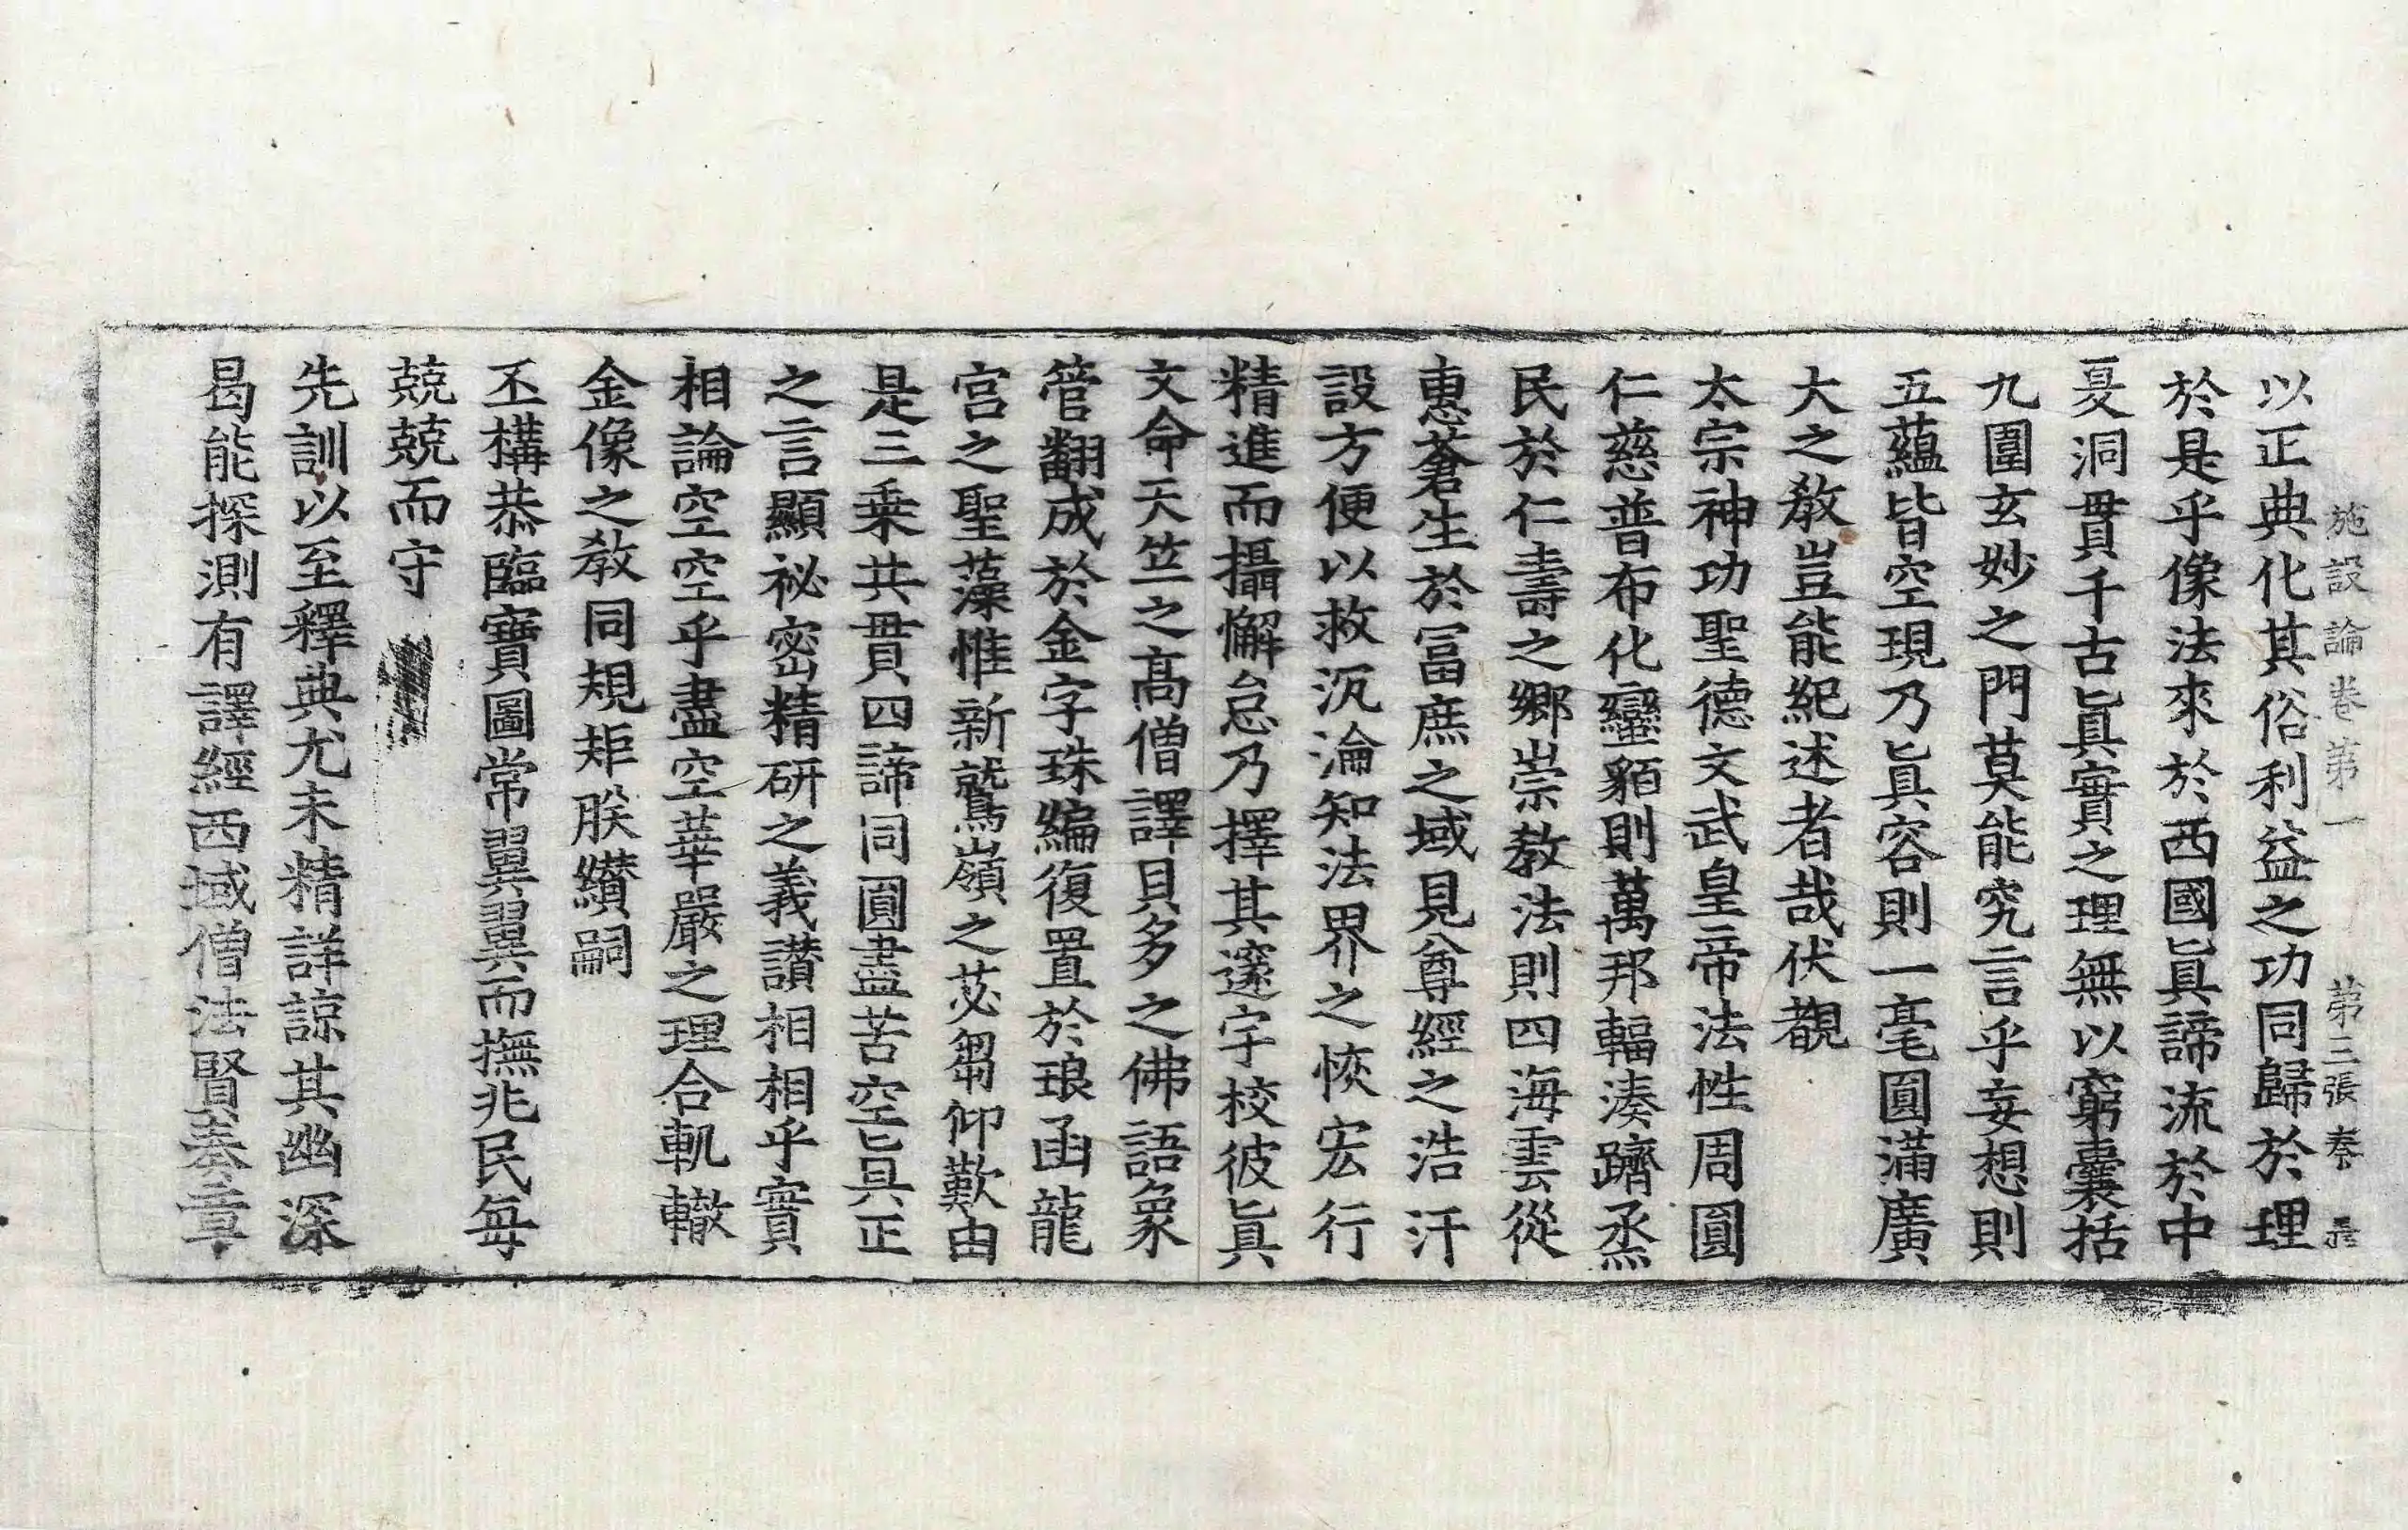 施設論卷第一 第三張 奏
以正典化其俗利益之功同歸於理
於是乎像法來於西國眞諦流於中
夏洞貫千古眞實之理無以窮囊括
九圍玄妙之門莫能究言乎妄想則
五蘊皆空現乃眞容則一毫圓滿廣
大之敎豈能紀述者哉伏覩
太宗神功聖德文武皇帝法性周圓
仁慈普布化蠻貊則萬邦輻湊躋烝
民於仁壽之鄕崇敎法則四海雲從
惠蒼生於冨庶之域見尊經之浩汗
設方便以救沉淪知法界之恢宏行
精進而攝懈怠乃擇其邃宇校彼眞
文命天竺之髙僧譯貝多之佛語象
管翻成於金字珠編復置於琅函龍
宮之聖藻惟新鷲嶺之苾蒭仰歎由
是三乗共貫四諦同圓盡苦空眞正
之言顯祕密精研之義讚相相乎實
相論空空乎盡空華嚴之理合軌轍
金像之敎同規矩朕纘嗣
丕構恭臨寶圖常翼翼而撫兆民每
兢兢而守
先訓以至釋典尤未精詳諒其幽深
曷能探測有譯經西域僧法賢奏章